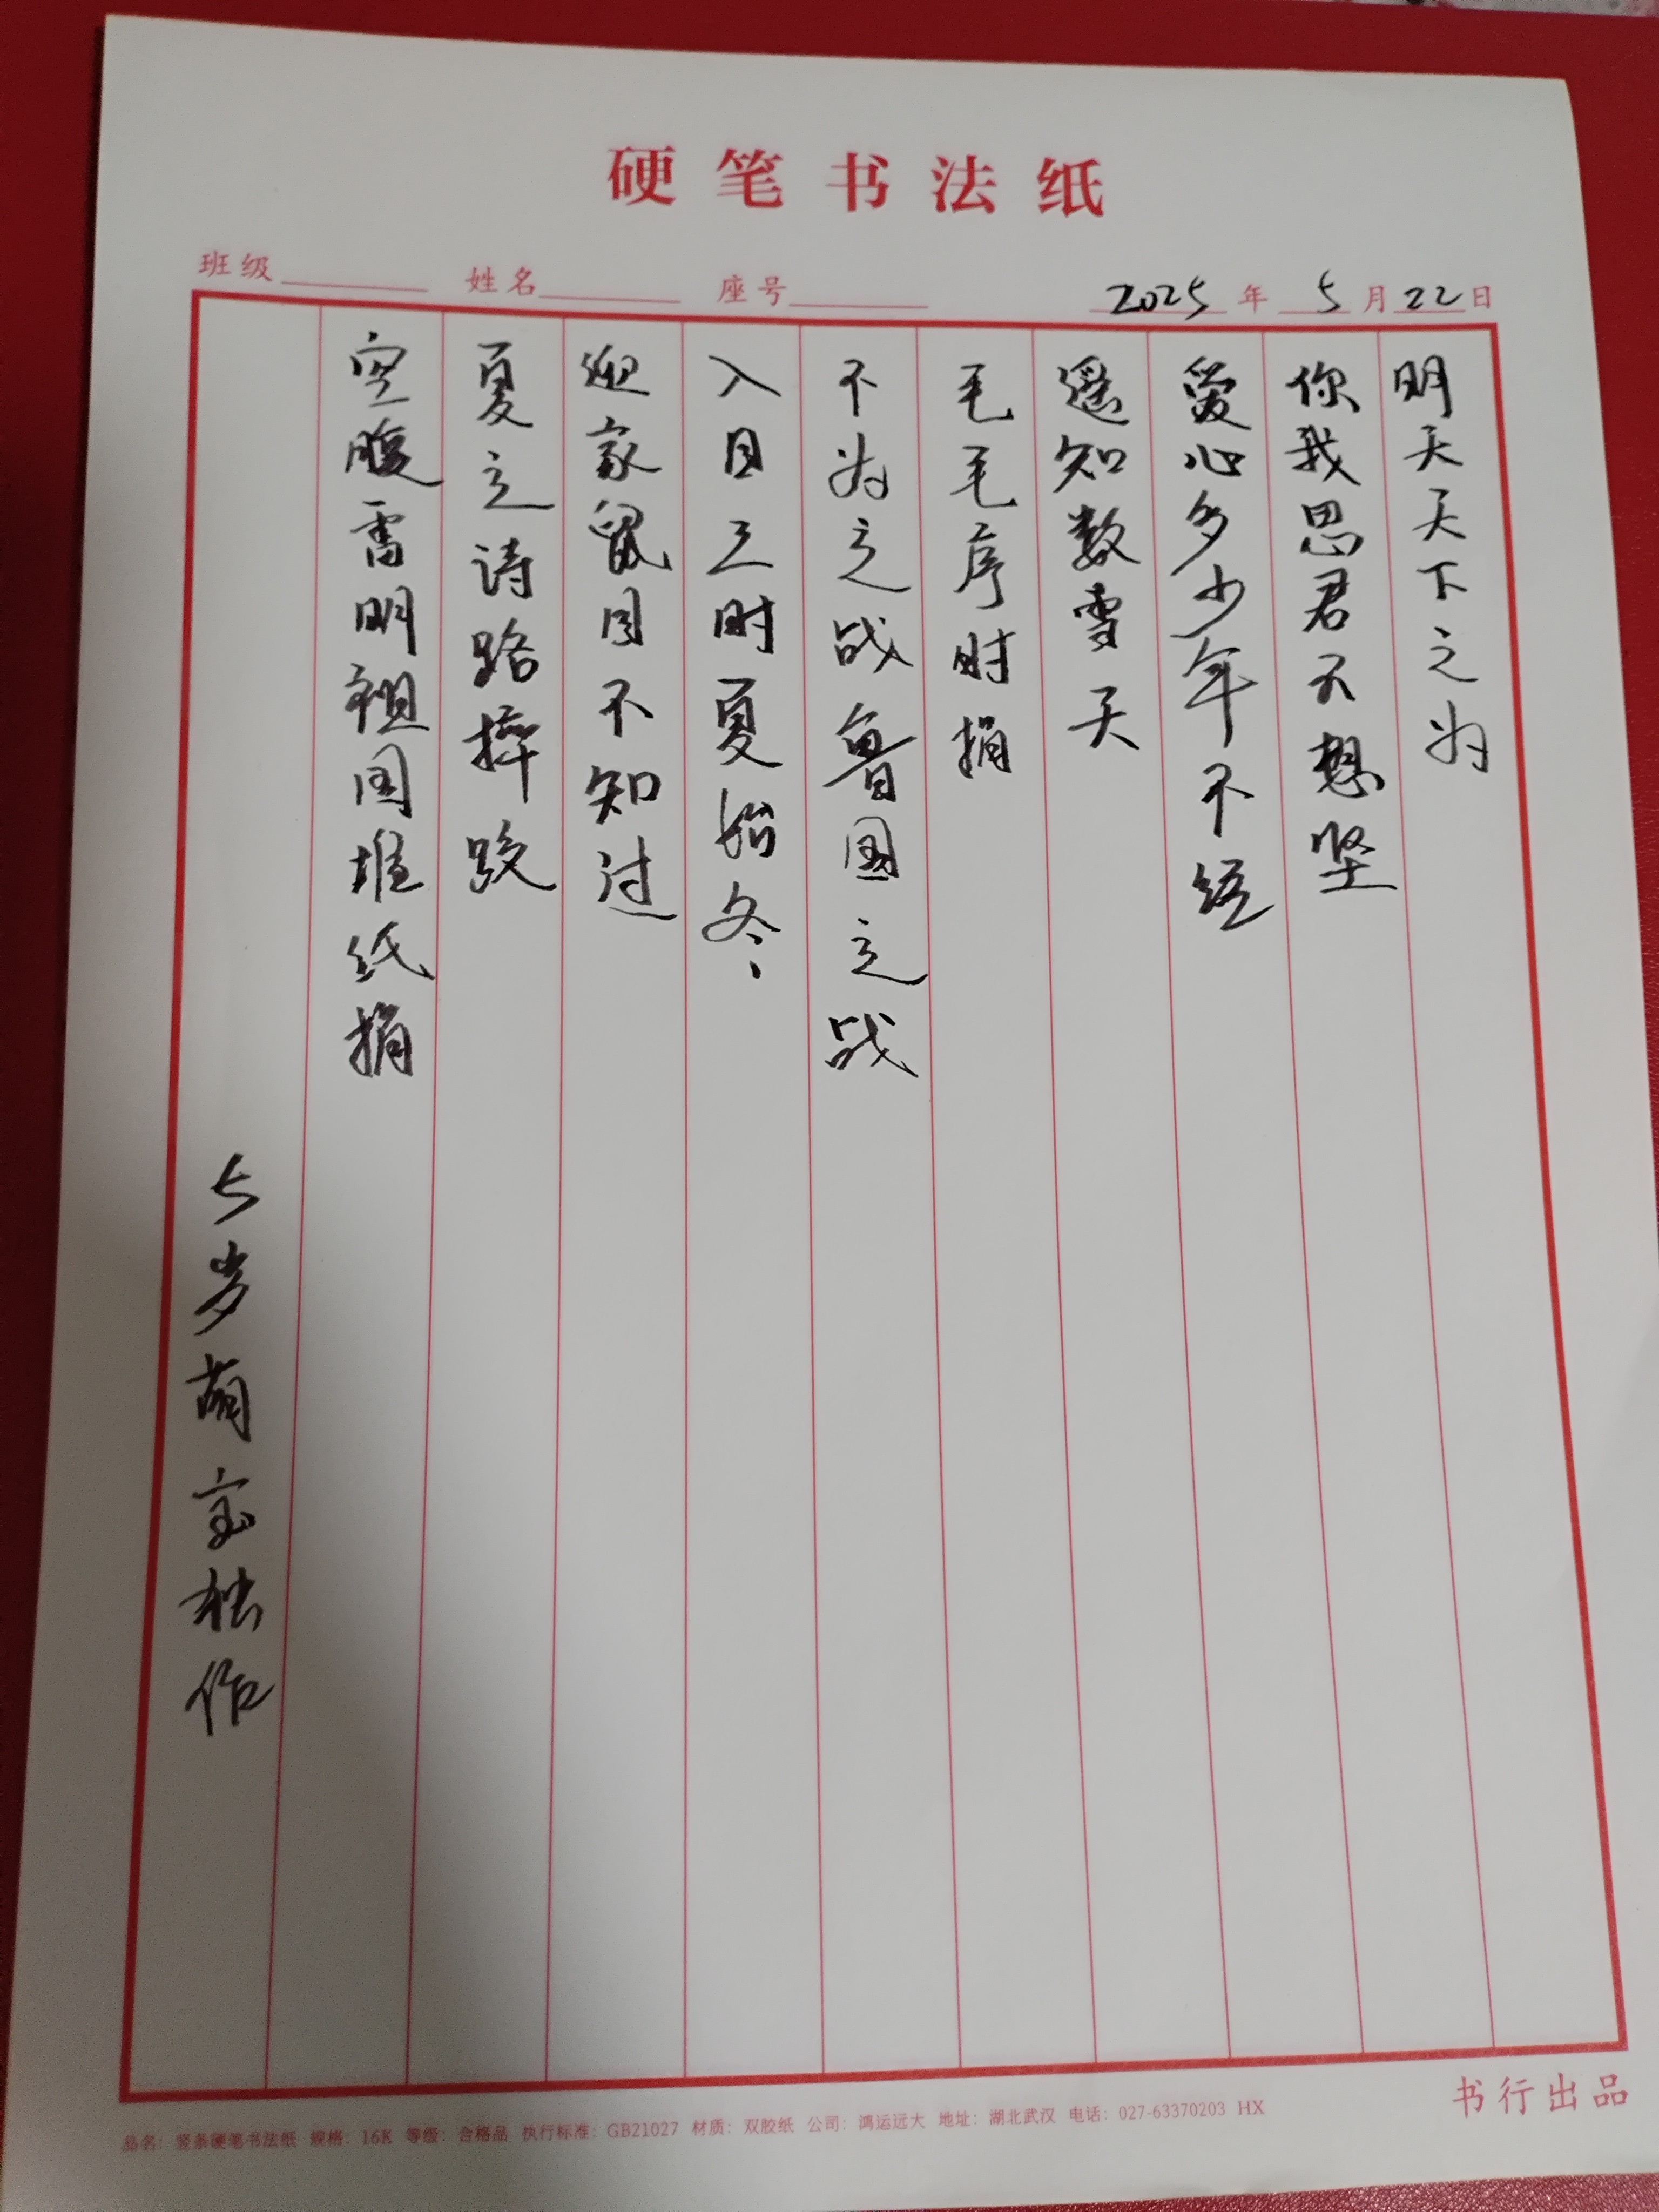 硬笔书法纸
班级 姓名 座号 2025年5月22日
明天天下之为
你我思君不想坚
爱心多少年不经
遥知数雪天
毛毛序时捐
不为之战鲁国之战
入目三时夏始冬、
迎家鼠目不知过
夏之诗路摔跤
空腹雷明祖国堆纸捐
七岁萌宝独作
书行出品
品名：竖条硬笔书法纸 规格：16K 等级：合格品 执行标准：GB21027 材质：双胶纸 公司：鸿运远大 地址：湖北武汉 电话：027-63370203 HX